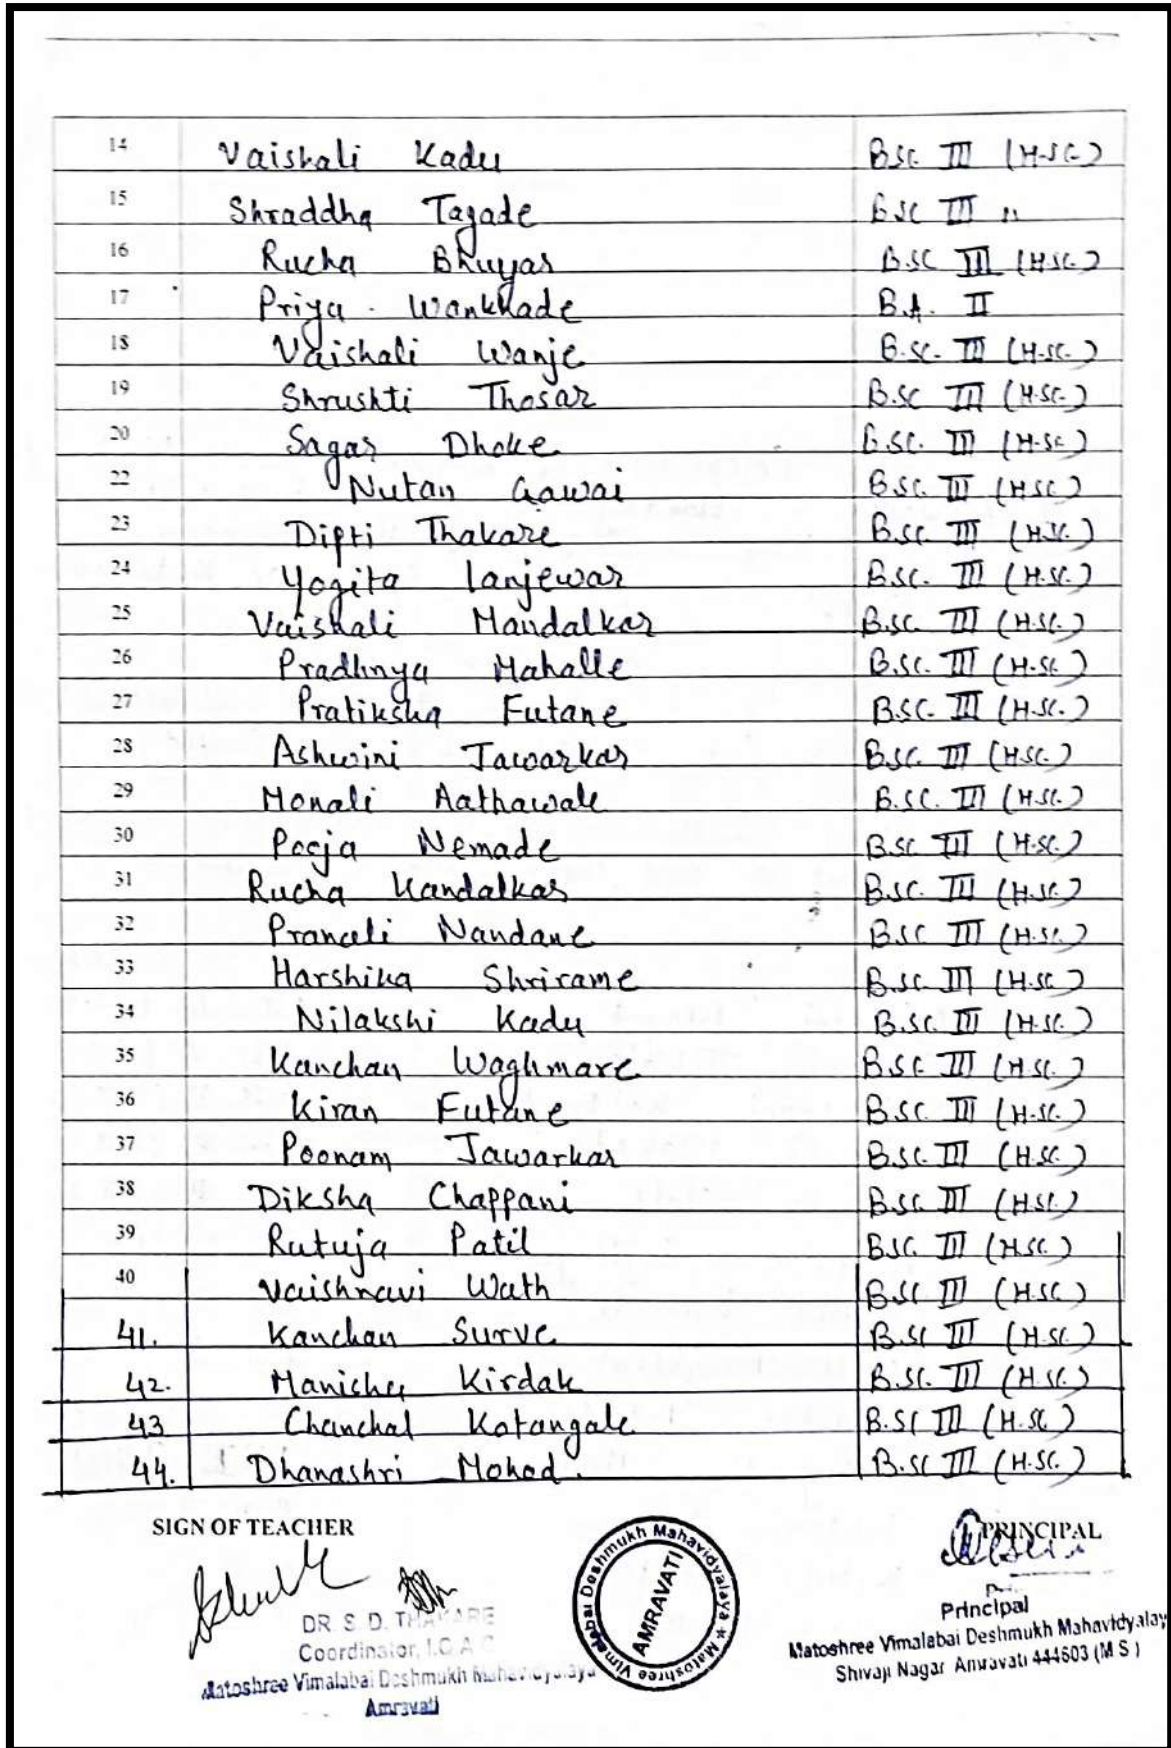 14 Vaishali Kadu BSC. III (H.SC.)
15 Shraddha Tayade B.SC III "
16 Rucha Bhuyar B.SC III (H.SC.)
17 Priya. Wankhade B.A. II
18 Vaishali Wanje B.SC. III (H.SC.)
19 Shrushti Thosar B.SC III (H.SC.)
20 Sagar Dhoke B.SC. III (H.SC)
22 Nutan Gawai B.SC. III (H.SC.)
23 Dipti Thakare B.SC. III (H.SC.)
24 Yogita Lanjewar B.SC. III (H.SC.)
25 Vaishali Mandalkar B.SC. III (H.SC.)
26 Pradhnya Mahalle B.SC. III (H.SC.)
27 Pratiksha Futane B.SC. III (H.SC.)
28 Ashwini Jawarkar B.SC. III (H.SC.)
29 Monali Aathawale B.SC. III (H.SC.)
30 Pooja Nemade B.SC. III (H.SC.)
31 Rucha Kandalkar B.SC. III (H.SC.)
32 Pranali Nandane B.SC III (H.SC.)
33 Harshika Shrirame B.SC. III (H.SC.)
34 Nilakshi Kadu B.SC. III (H.SC.)
35 Kanchan Waghmare B.SC. III (H.SC.)
36 Kiran Futane B.SC. III (H.SC.)
37 Poonam Jawarkar B.SC. III (H.SC.)
38 Diksha Chappani B.SC. III (H.SC.)
39 Rutuja Patil B.SC. III (H.SC.)
40 Vaishnavi Wath B.SC. III (H.SC.)
41. Kanchan Surve B.SC III (H.SC.)
42. Manisha Kirdak B.SC. III (H.SC.)
43 Chanchal Kotangale B.SC III (H.SC)
44. Dhanashri Mohod. B.SC III (H.SC.)
SIGN OF TEACHER
PRINCIPAL
DR. S. D. THAKARE
Coordinator, I.Q.A.C
Matoshree Vimalabai Deshmukh Mahavidyalaya
Amravati
Matoshree Vimalabai Deshmukh Mahavidyalaya *
AMRAVATI
Principal
Matoshree Vimalabai Deshmukh Mahavidyalay
Shivaji Nagar Amravati 444603 (M S )